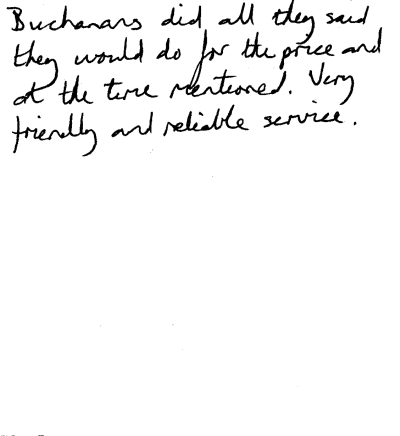 Buchanans did all they said
they would do for the price and
at the time mentioned. Very
friendly and reliable service.